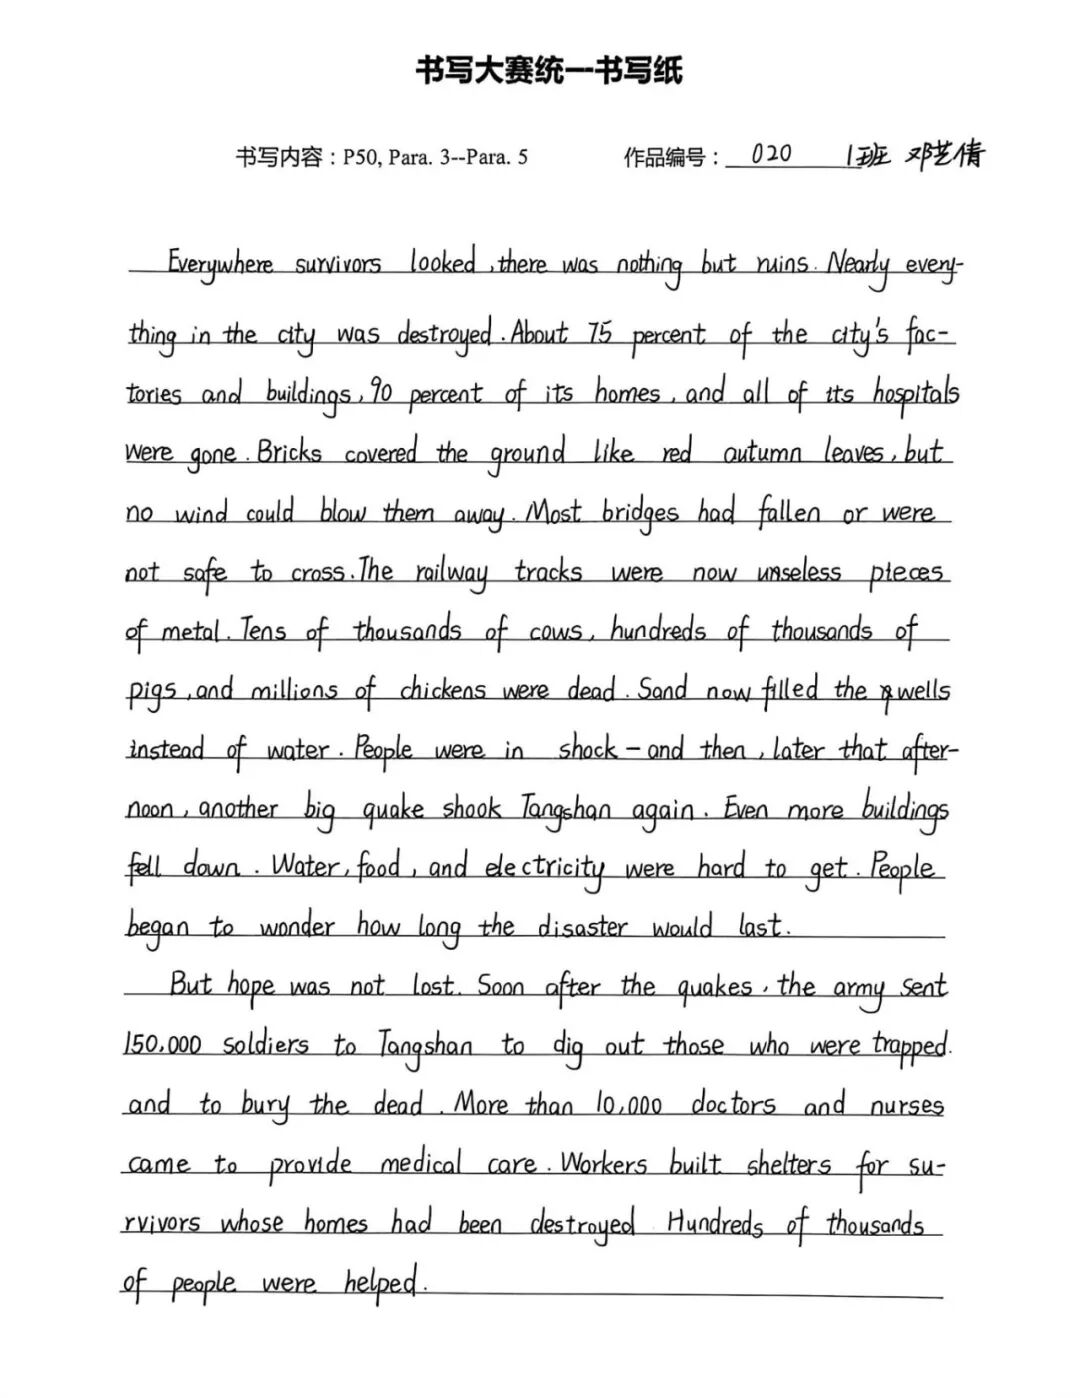 书写大赛统一书写纸
书写内容：P50, Para. 3--Para. 5 作品编号：020 1班 邓艺倩
Everywhere survivors looked, there was nothing but ruins. Nearly every-
thing in the city was destroyed. About 75 percent of the city's fac-
tories and buildings, 90 percent of its homes, and all of its hospitals
were gone. Bricks covered the ground like red autumn leaves, but
no wind could blow them away. Most bridges had fallen or were
not safe to cross. The railway tracks were now unseless pieces
of metal. Tens of thousands of cows, hundreds of thousands of
pigs, and millions of chickens were dead. Sand now filled the wells
instead of water. People were in shock – and then, later that after-
noon, another big quake shook Tangshan again. Even more buildings
fell down. Water, food, and electricity were hard to get. People
began to wonder how long the disaster would last.
But hope was not lost. Soon after the quakes, the army sent
150,000 soldiers to Tangshan to dig out those who were trapped
and to bury the dead. More than 10,000 doctors and nurses
came to provide medical care. Workers built shelters for su-
rvivors whose homes had been destroyed. Hundreds of thousands
of people were helped.